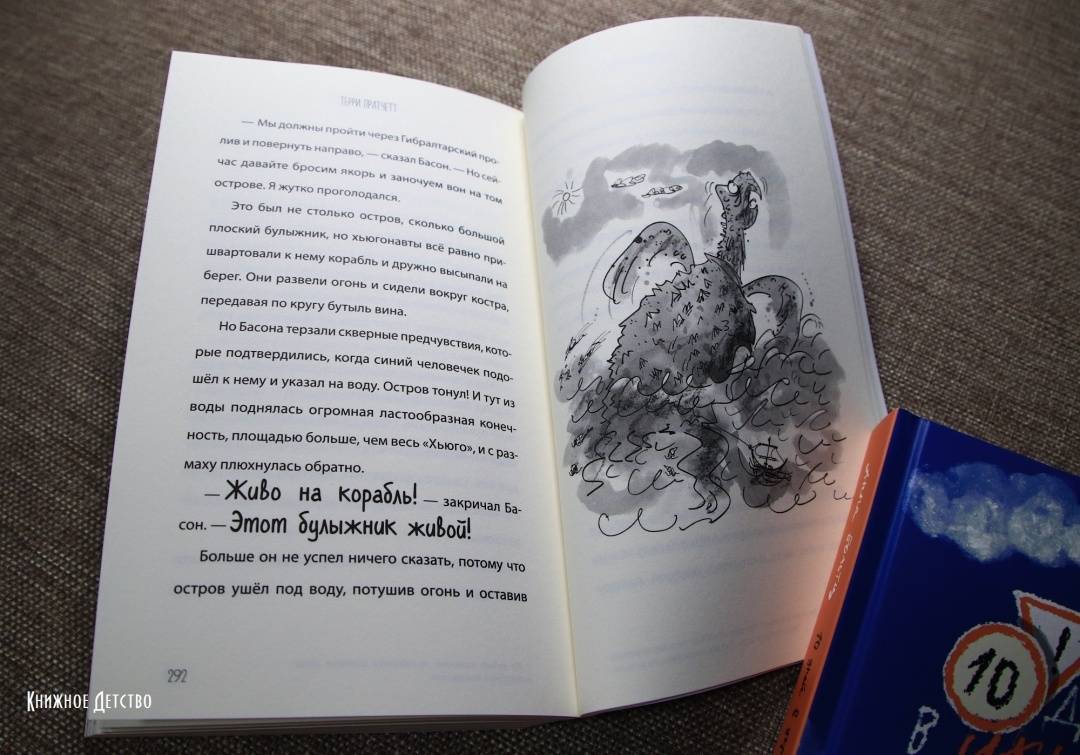 ТЕРРИ ПРАТЧЕТТ
— Мы должны пройти через Гибралтарский про-
лив и повернуть направо, — сказал Басон. — Но сей-
час давайте бросим якорь и заночуем вон на том
острове. Я жутко проголодался.
Это был не столько остров, сколько большой
плоский булыжник, но хьюгонавты всё равно при-
швартовали к нему корабль и дружно высыпали на
берег. Они развели огонь и сидели вокруг костра,
передавая по кругу бутыль вина.
Но Басона терзали скверные предчувствия, кото-
рые подтвердились, когда синий человечек подо-
шёл к нему и указал на воду. Остров тонул! И тут из
воды поднялась огромная ластообразная конеч-
ность, площадью больше, чем весь «Хьюго», и с раз-
маху плюхнулась обратно.
— Живо на корабль! — закричал Ба-
сон. — Этот булыжник живой!
Больше он не успел ничего сказать, потому что
остров ушёл под воду, потушив огонь и оставив
292
Книжное Детство
10
В